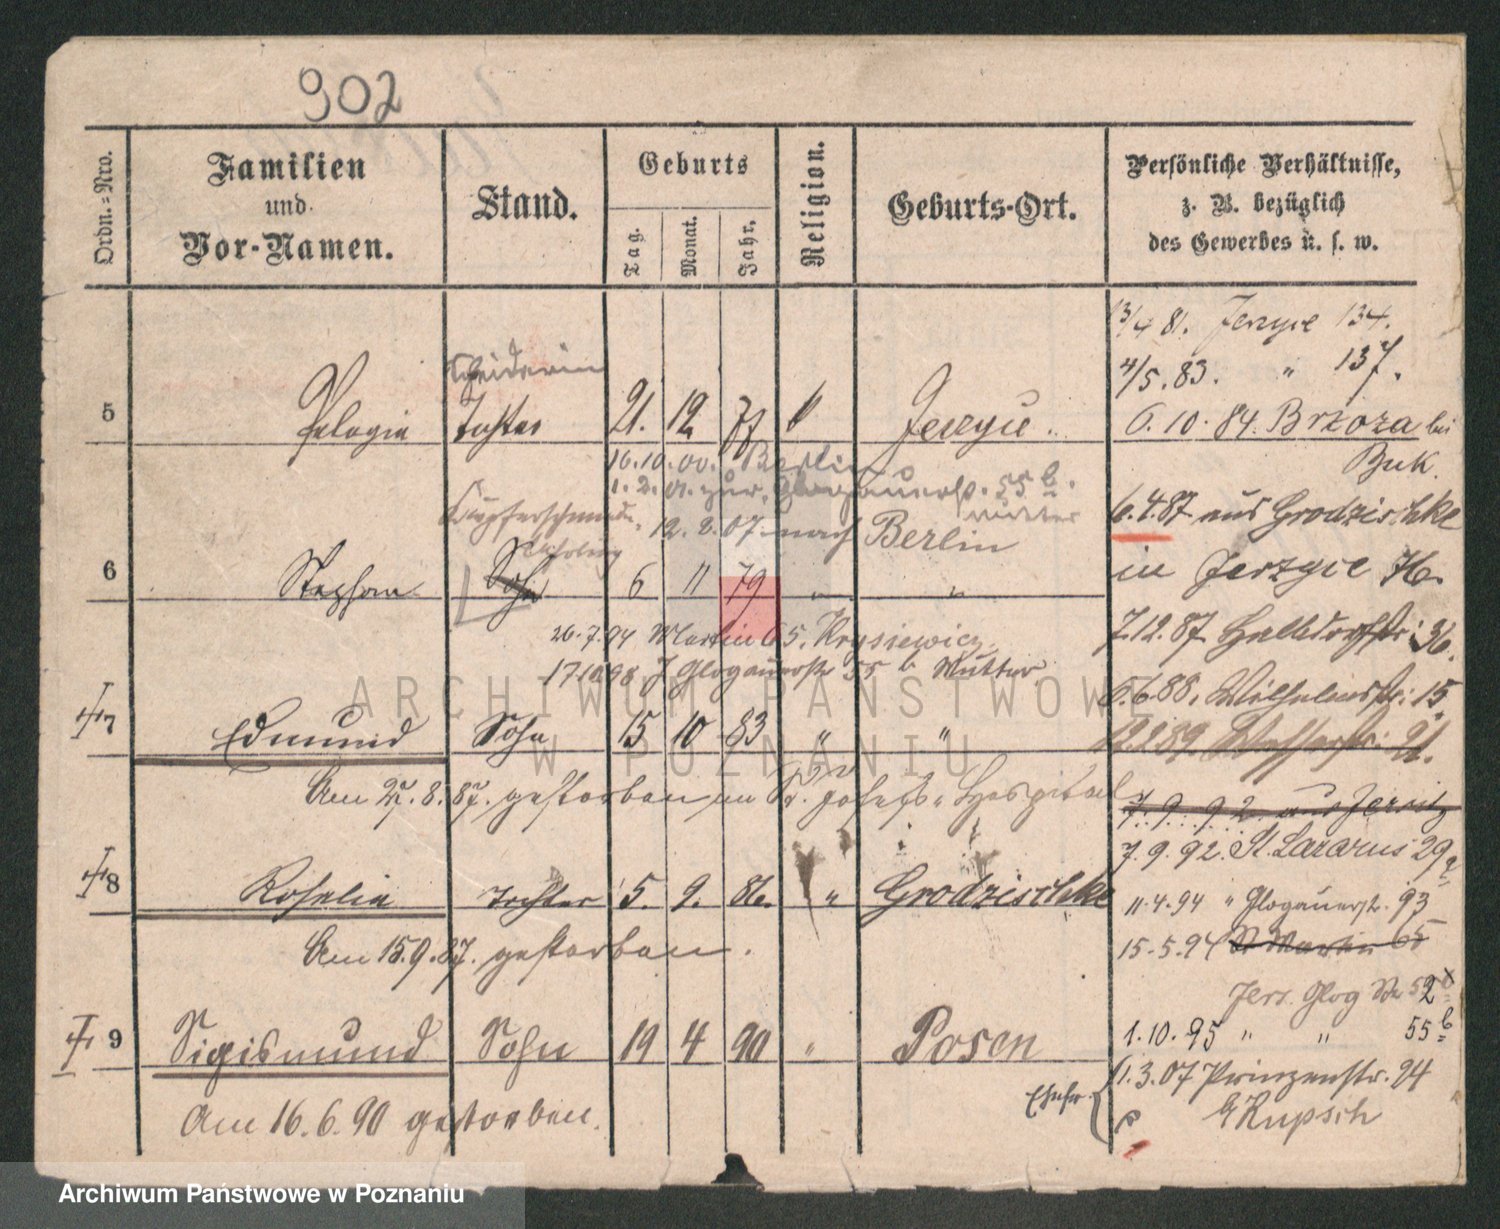 902
Ordn.-Nro.
Familien
und
Vor-Namen.
Stand.
Geburts
Tag.
Monat.
Jahr.
Religion.
Geburts-Ort.
Persönliche Verhältnisse,
z. B. bezüglich
des Gewerbes u. s. w.
13/4 81. Jerzyce 134.
4/5. 83. " 137.
5 Pelagie Tochter 21. 12. " Jerzyce.
6. 10. 84. Brzoza bei
Buk.
16.10.00. Berlin
1. 2. 01. zur. Glogauerstr. 55 b.
Mutter
12. 2. 07. nach Berlin
6.4.87 aus Grodzischke
in Jerzyce 76.
6 Stephan Sohn 6 11 79 " "
26.7.94 Martin 65. Krysiewicz
17.10.98 J. Glogauerstr 55 b Mutter
7.12.87 36.
6.6.88. Wilhelmstr: 15
7 Edmund Sohn 15 10 83 " "
12.2.89. Wasserstr: 21.
Am 27. 8. 87. gestorben im St. Josefs-Hospital
7. 9. 92 aus Jersitz
7. 9. 92. St. Lazarus 29
8 Roselia Tochter 5. 9. 86. " Grodzischke
11.4.94 " Glogauerstr. 93
15.5.94 St Martin 65
Am 15.9.87. gestorben.
Jers. Glog Str 52
9 Sigismund Sohn 19 4 90 " Posen
1.10.95 " " 55 b
1.3.07 Prinzenstr. 24
Am 16. 6. 90 gestorben.
Ehefr.
b/ Kupsch
ARCHIWUM PAŃSTWOWE
W POZNANIU
Archiwum Państwowe w Poznaniu